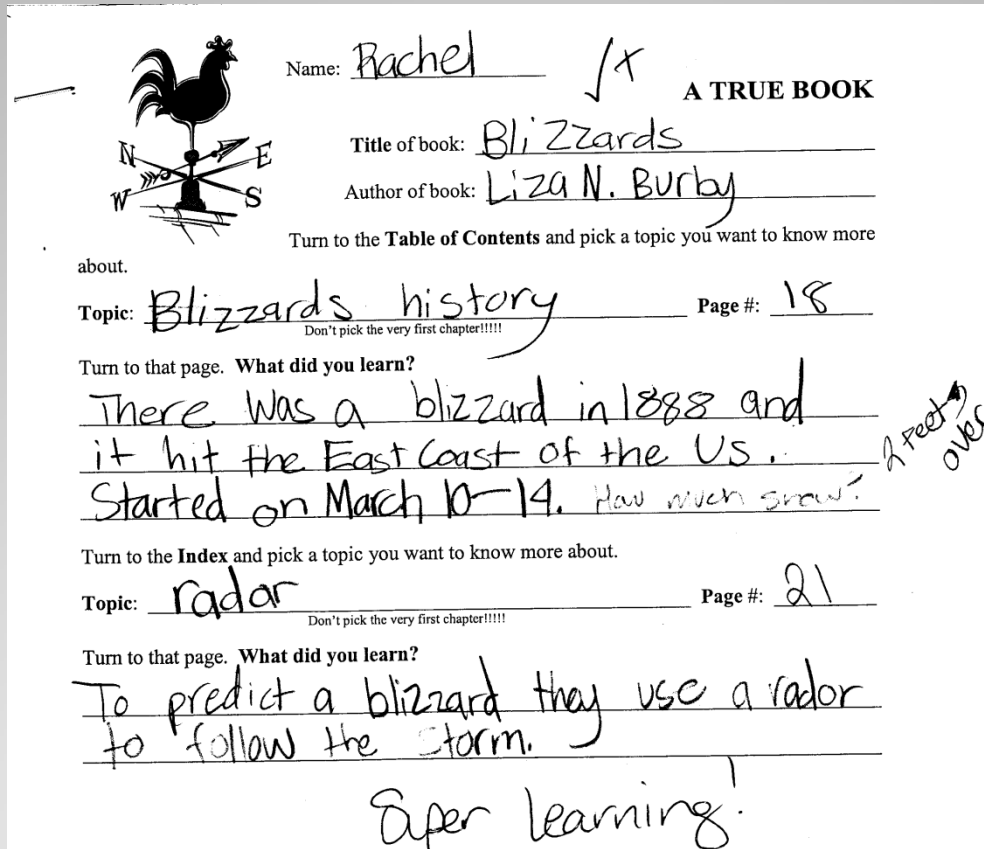 Name: Rachel √+
A TRUE BOOK
N E
W S
Title of book: Blizzards
Author of book: Liza N. Burby
Turn to the Table of Contents and pick a topic you want to know more
about.
Topic: Blizzards history Page #: 18
Don't pick the very first chapter!!!!!
Turn to that page. What did you learn?
There was a blizzard in 1888 and
it hit the East Coast of the US.
Started on March 10-14. How much snow?
2 feet
over
Turn to the Index and pick a topic you want to know more about.
Topic: radar Page #: 21
Don't pick the very first chapter!!!!!
Turn to that page. What did you learn?
To predict a blizzard they use a rador
to follow the storm.
Super learning!